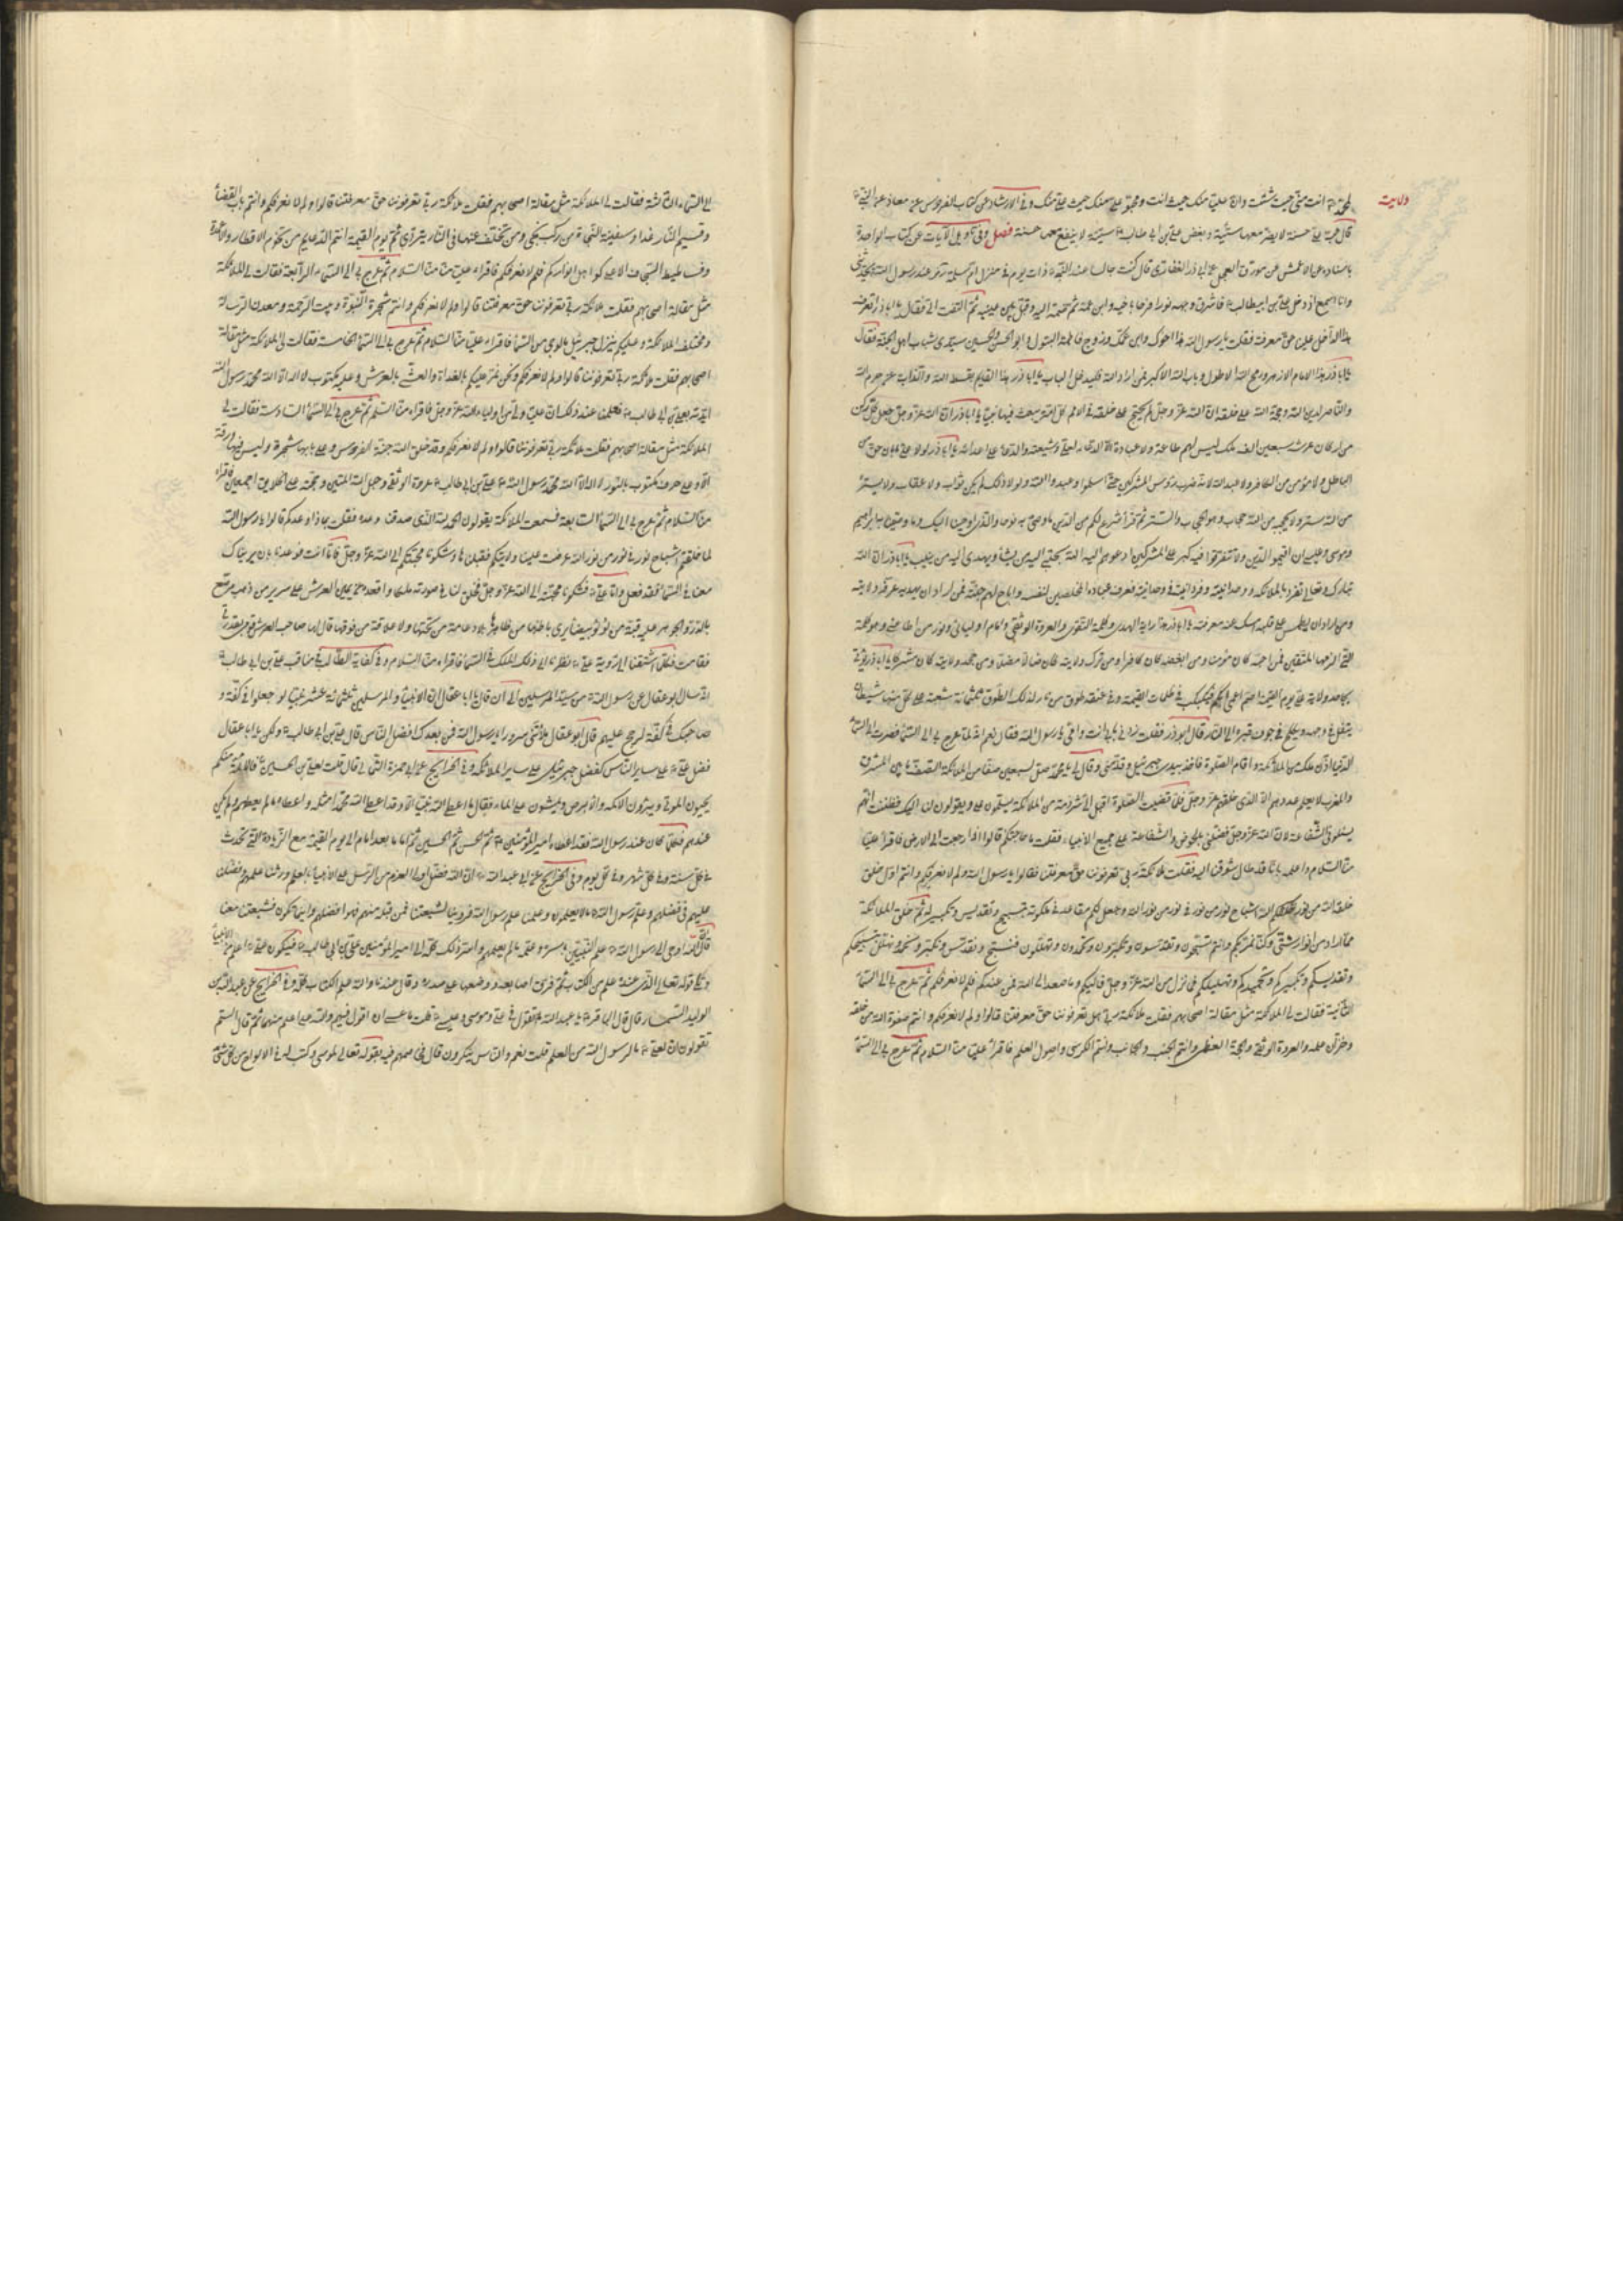 ولايت
لمحمد انت منى حيث شئت وان عليا منك حيث انت ومحبو على منك حيث على منك وفى الارشاد عن كتاب الفردوس عن معاذ عن النبى
قال حب على حسنة لا يضر معها سيئة وبغض على بن ابى طالب سيئة لا ينفع معها حسنة فصل وفى تاويل الآيات عن كتاب الواحدة
باسناده عن الاعمش عن مورق العجلى عن ابى ذر الغفارى قال كنت جالسا عند النبى ذات يوم فى منزل ام سلمة ورسول الله يحدثنى
وانا اسمع اذ دخل على بن ابيطالب فاشرق وجهه نورا فرحا باخيه وابن عمه ثم ضمه اليه وقبل بين عينيه ثم التفت الى فقال يا اباذر اتعرف
هذا الداخل علينا حق معرفته فقلت يا رسول الله هذا اخوك وابن عمك وزوج فاطمة البتول وابو الحسن والحسين سيدى شباب اهل الجنة فقال
يا اباذر هذا الامام الازهر ورمح الله الاطول وباب الله الاكبر فمن اراد الله فليدخل الباب يا اباذر هذا القايم بقسط الله والذاب عن حرم الله
والناصر لدين الله وحجة الله على خلقه ان الله عز وجل لم يحتج على خلقه فى الامم كل امة يبعث فيها نبيا يا اباذر ان الله عز وجل جعل على كل ركن
من اركان عرشه سبعين الف ملك ليس لهم طاعة ولا عبادة الا الدعاء لعلى وشيعته والدعاء على اعدائه يا اباذر لولا على ما بان حق من
الباطل ولا مؤمن من الكافر ولا عبد الله لانه ضرب رؤس المشركين حتى اسلموا وعبدوا الله ولولا ذلك لم يكن ثواب ولا عقاب ولا يستره
من الله ستر ولا يحجبه من الله حجاب وهو الحجاب والستر ثم قرأ شرع لكم من الدين ما وصى به نوحا والذى اوحينا اليك وما وصينا به ابراهيم
وموسى وعيسى ان اقيموا الدين ولا تتفرقوا فيه كبر على المشركين ما تدعوهم اليه الله يجتبى اليه من يشاء ويهدى اليه من ينيب يا اباذر ان الله
تبارك وتعالى تفرد بالملكه ووحدانيته وفردانيته فى وحدانيته فعرف عباده المخلصين لنفسه واباح لهم جنته فمن اراد ان يهديه عرفه ولايته
ومن اراد ان يطمس على قلبه امسك عنه معرفته يا اباذر هذا راية الهدى وكلمة التقوى والعروة الوثقى وامام اوليائى ونور من اطاعنى وهو الكلمة
التى الزمها المتقين فمن احبه كان مؤمنا ومن ابغضه كان كافرا ومن ترك ولايته كان ضالا مضلا ومن جحد ولايته كان مشركا يا اباذر يؤتى
بجاحد ولاية على يوم القيمة اصم اعمى ابكم فيكبكب فى ظلمات القيمة وفى عنقه طوق من نار لذلك الطوق ثلثمائة شعبة على كل منها شيطان
يتفل فى وجهه ويكلح فى جوف قبره الى النار قال ابوذر فقلت زدنى بابى انت وامى يا رسول الله فقال نعم انه لما عرج بى الى السماء فصرت الى السماء
الدنيا اذن ملك من الملائكة واقام الصلوة فاخذ بيدى جبرئيل وقدمنى وقال لى يا محمد صل بسبعين صفا من الملائكة الصف ما بين المشرق
والمغرب لا يعلم عددهم الا الذى خلقهم عز وجل فلما قضيت الصلوة اقبل الى شرذمة من الملائكة يسلمون على ويقولون لنا اليك فظننت انهم
يسئلونى الشفاعة لان الله عز وجل فضلنى بالحوض والشفاعة على جميع الانبياء فقلت ما حاجتكم قالوا اذا رجعت الى الارض فاقرأ عليا
منا السلام واعلمه بانا قد طال شوقنا اليه فقلت ملائكة ربى تعرفوننا حق معرفتنا فقالوا يا رسول الله ولم لا نعرفكم وانتم اول خلق
خلقه الله من نور خلقكم الله اشباح نور من نور فى نور من نور الله وجعل لكم مقاعد فى ملكوته بتسبيح وتقديس وتكبير له ثم خلق الملائكة
مما اراد من انوار شتى وكنا نمر بكم وانتم تسبحون وتقدسون وتكبرون وتحمدون وتهللون فنسبح ونقدس ونكبر ونحمد ونهلل بتسبيحكم
وتقديسكم وتكبيركم وتحميدكم وتهليلكم فما نزل من الله عز وجل فاليكم وما صعد الى الله فمن عندكم فلم لا نعرفكم ثم عرج بى الى السماء
الثانية فقالت لى الملائكة مثل مقالة اصحابهم فقلت ملائكة ربى هل تعرفوننا حق معرفتنا قالوا ولم لا نعرفكم وانتم صفوة الله من خلقه
وخزان علمه والعروة الوثقى والحجة العظمى وانتم الجنب والجانب وانتم الكرسى واصول العلم فاقرأ عليا منا السلام ثم عرج بى الى السماء
الى السماء الثالثة فقالت لى الملائكة مثل مقالة اصحابهم فقلت ملائكة ربى تعرفوننا حق معرفتنا قالوا ولم لا نعرفكم وانتم باب القضاء
وقسيم النار غدا وسفينة النجاة من ركب نجى ومن تخلف عنها فى النار يتردى ثم يوم القيمة انتم الدعايم من تخوم الاقطار والاعمدة
وفساطيط السجاف الاعلى كواهل انواركم فلم لا نعرفكم فاقراء عليا منا السلام ثم عرج بى الى السماء الرابعة فقالت لى الملائكة
مثل مقالة اصحابهم فقلت ملائكة ربى تعرفوننا حق معرفتنا قالوا ولم لا نعرفكم وانتم شجرة النبوة وبيت الرحمة ومعدن الرسالة
ومختلف الملائكة وعليكم ينزل جبرئيل بالوحى من السماء فاقراء عليا منا السلام ثم عرج بى الى السماء الخامسة فقالت لى الملائكة مثل مقالة
اصحابهم فقلت ملائكة ربى تعرفوننا قالوا ولم لا نعرفكم ونحن نمر عليكم بالغداة والعشى بالعرش وعليه مكتوب لا اله الا الله محمد رسول الله
ايدته بعلى بن ابى طالب فعلمنا عند ذلك ان عليا ولى من اولياء الله عز وجل فاقراه منا السلم ثم عرج بى الى السماء السادسة فقالت لى
الملائكة مثل مقالة اصحابهم فقلت ملائكة ربى تعرفوننا قالوا ولم لا نعرفكم وقد خلق الله جنة الفردوس وعلى بابها شجرة وليس فيها ورقة
الا وعلى حرف مكتوب بالنور لا اله الا الله محمد رسول الله على بن ابى طالب عروة الوثقى وحبل الله المتين وحجته على الخلايق اجمعين فاقراه
منا السلام ثم عرج بى الى السماء السابعة فسمعت الملائكة يقولون الحمد لله الذى صدقنا وعده فقلت بماذا وعدكم قالوا يا رسول الله
لما خلقتم اشباح نور فى نور من نور الله عرضت علينا ولايتكم فقبلناها وشكونا محبتكم الى الله عز وجل فاما انت فوعدنا بان يريناك
معنا فى السماء وقد فعل واما على فشكونا محبته الى الله عز وجل فخلق لنا فى صورته ملكا واقعده عن يمين العرش على سرير من ذهب مرصع
بالدر والجوهر عليه قبة من لؤلؤ بيضاء يرى باطنها من ظاهرها بلا دعامة من تحتها ولا علاقة من فوقها قال لها صاحب العرش قومى بقدرتى
فقامت فكلما اشتقنا الى رؤية على نظرنا الى ذلك الملك فى السماء فاقراه منا السلام وفى كفاية الطالب فى مناقب على بن ابى طالب
انه سال ابو عقال عن رسول الله من سيد المرسلين الى ان قال يا ابا عقال ان الانبياء والمرسلين ثلثمائة عشر نبيا لو جعلوا فى كفة و
صاحبك فى كفة لرجح عليهم قال ابو عقال ملأتنى سرورا يا رسول الله فمن بعدك افضل الناس قال على بن ابى طالب ولكن يا ابا عقال
فضل على على ساير الناس كفضل جبرئيل على ساير الملائكة وفى الخرايج عن ابى حمزة الثمالى قال قلت لعلى بن الحسين الائمة منكم
يحيون الموتى ويبرؤن الاكمه والابرص ويمشون على الماء فقال ما اعطى الله نبيا الا وقد اعطى الله محمدا مثله واعطاه ما لم يعطهم ولم يكن
عندهم فكلما كان عند رسول الله فقد اعطاه امير المؤمنين ثم الحسن ثم الحسين ثم اماما بعد امام الى يوم القيمة مع الزيادة التى تحدث
فى كل سنة وفى كل شهر وفى كل يوم وفى الخرايج عن ابى عبد الله ان الله فضل اولى العزم من الرسل على الانبياء بالعلم وورثنا علمهم وفضلنا
عليهم فى فضلهم وعلم رسول الله ما لا يعلمون وعلمنا علم رسول الله فروينا لشيعتنا فمن قبله منهم فهو افضلهم واينما نكون فشيعتنا معنا
قال ان الله اوحى الى رسول الله علم النبيين باسره وعلمه ما لم يعلمهم واسر ذلك كله الى امير المؤمنين على بن ابى طالب فيكون على اعلم من الانبياء
وتلى قوله تعالى الذى عنده علم من الكتاب ثم فرق اصابعه ووضعها على صدره وقال عندنا والله علم الكتاب كله وفى الخرايج عن عبد الله بن
الوليد السمان قال قال الباقر يا عبد الله ما تقول فى على وموسى وعيسى قلت ما عسى ان اقول فيهم قال والله على اعلم منهما ثم قال الستم
تقولون ان لعلى ما لرسول الله من العلم قلت نعم والناس ينكرون قال فخاصمهم فيه بقوله تعالى لموسى وكتبنا له فى الالواح من كل شئ